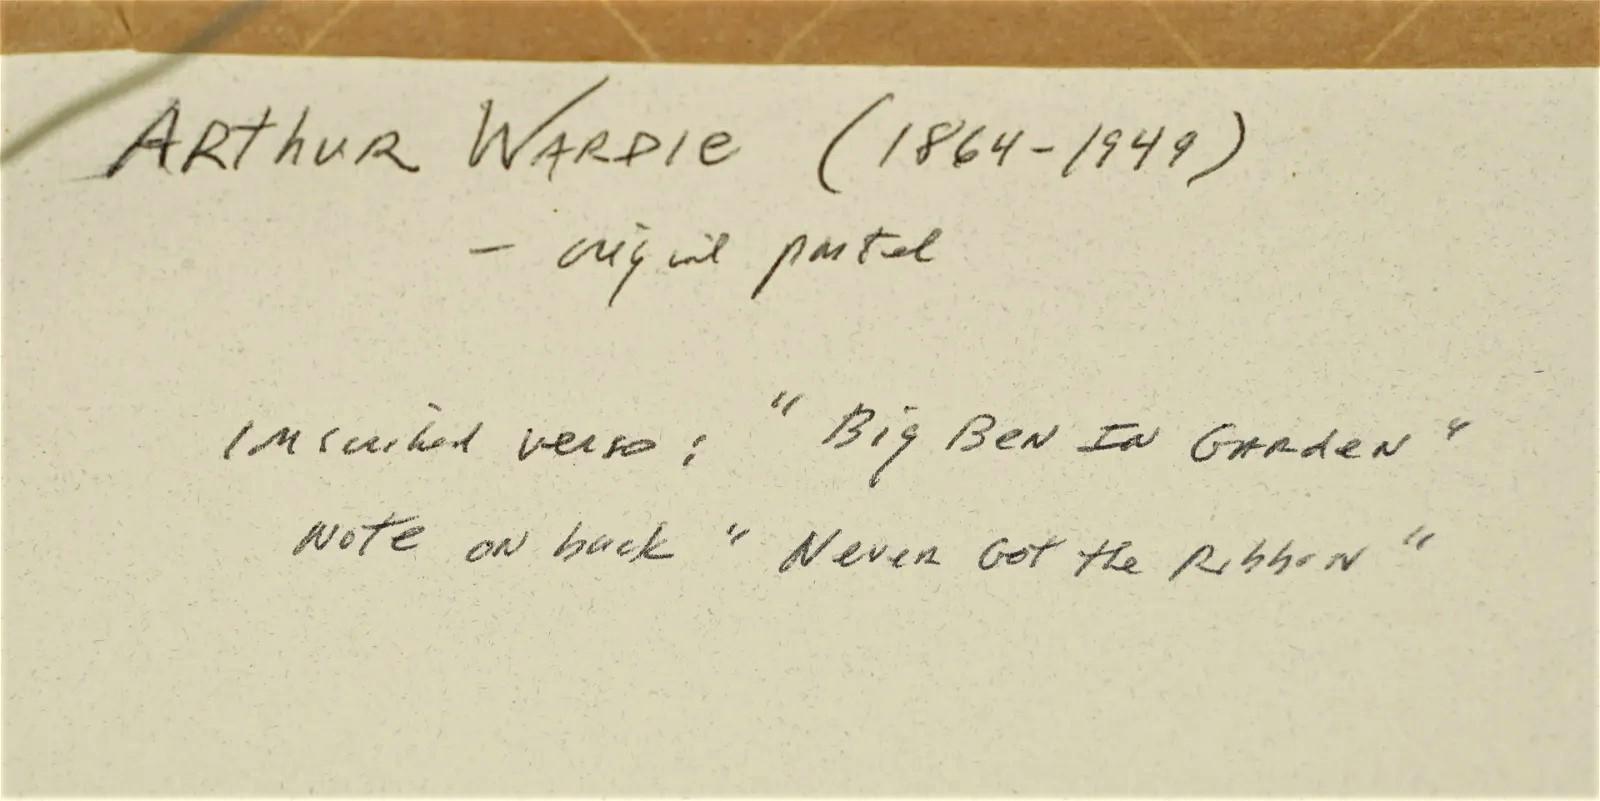 Arthur Wardle (1864-1949)
- original pastel
Inscribed verso: "Big Ben In Garden"
Note on back "Never Got the Ribbon"